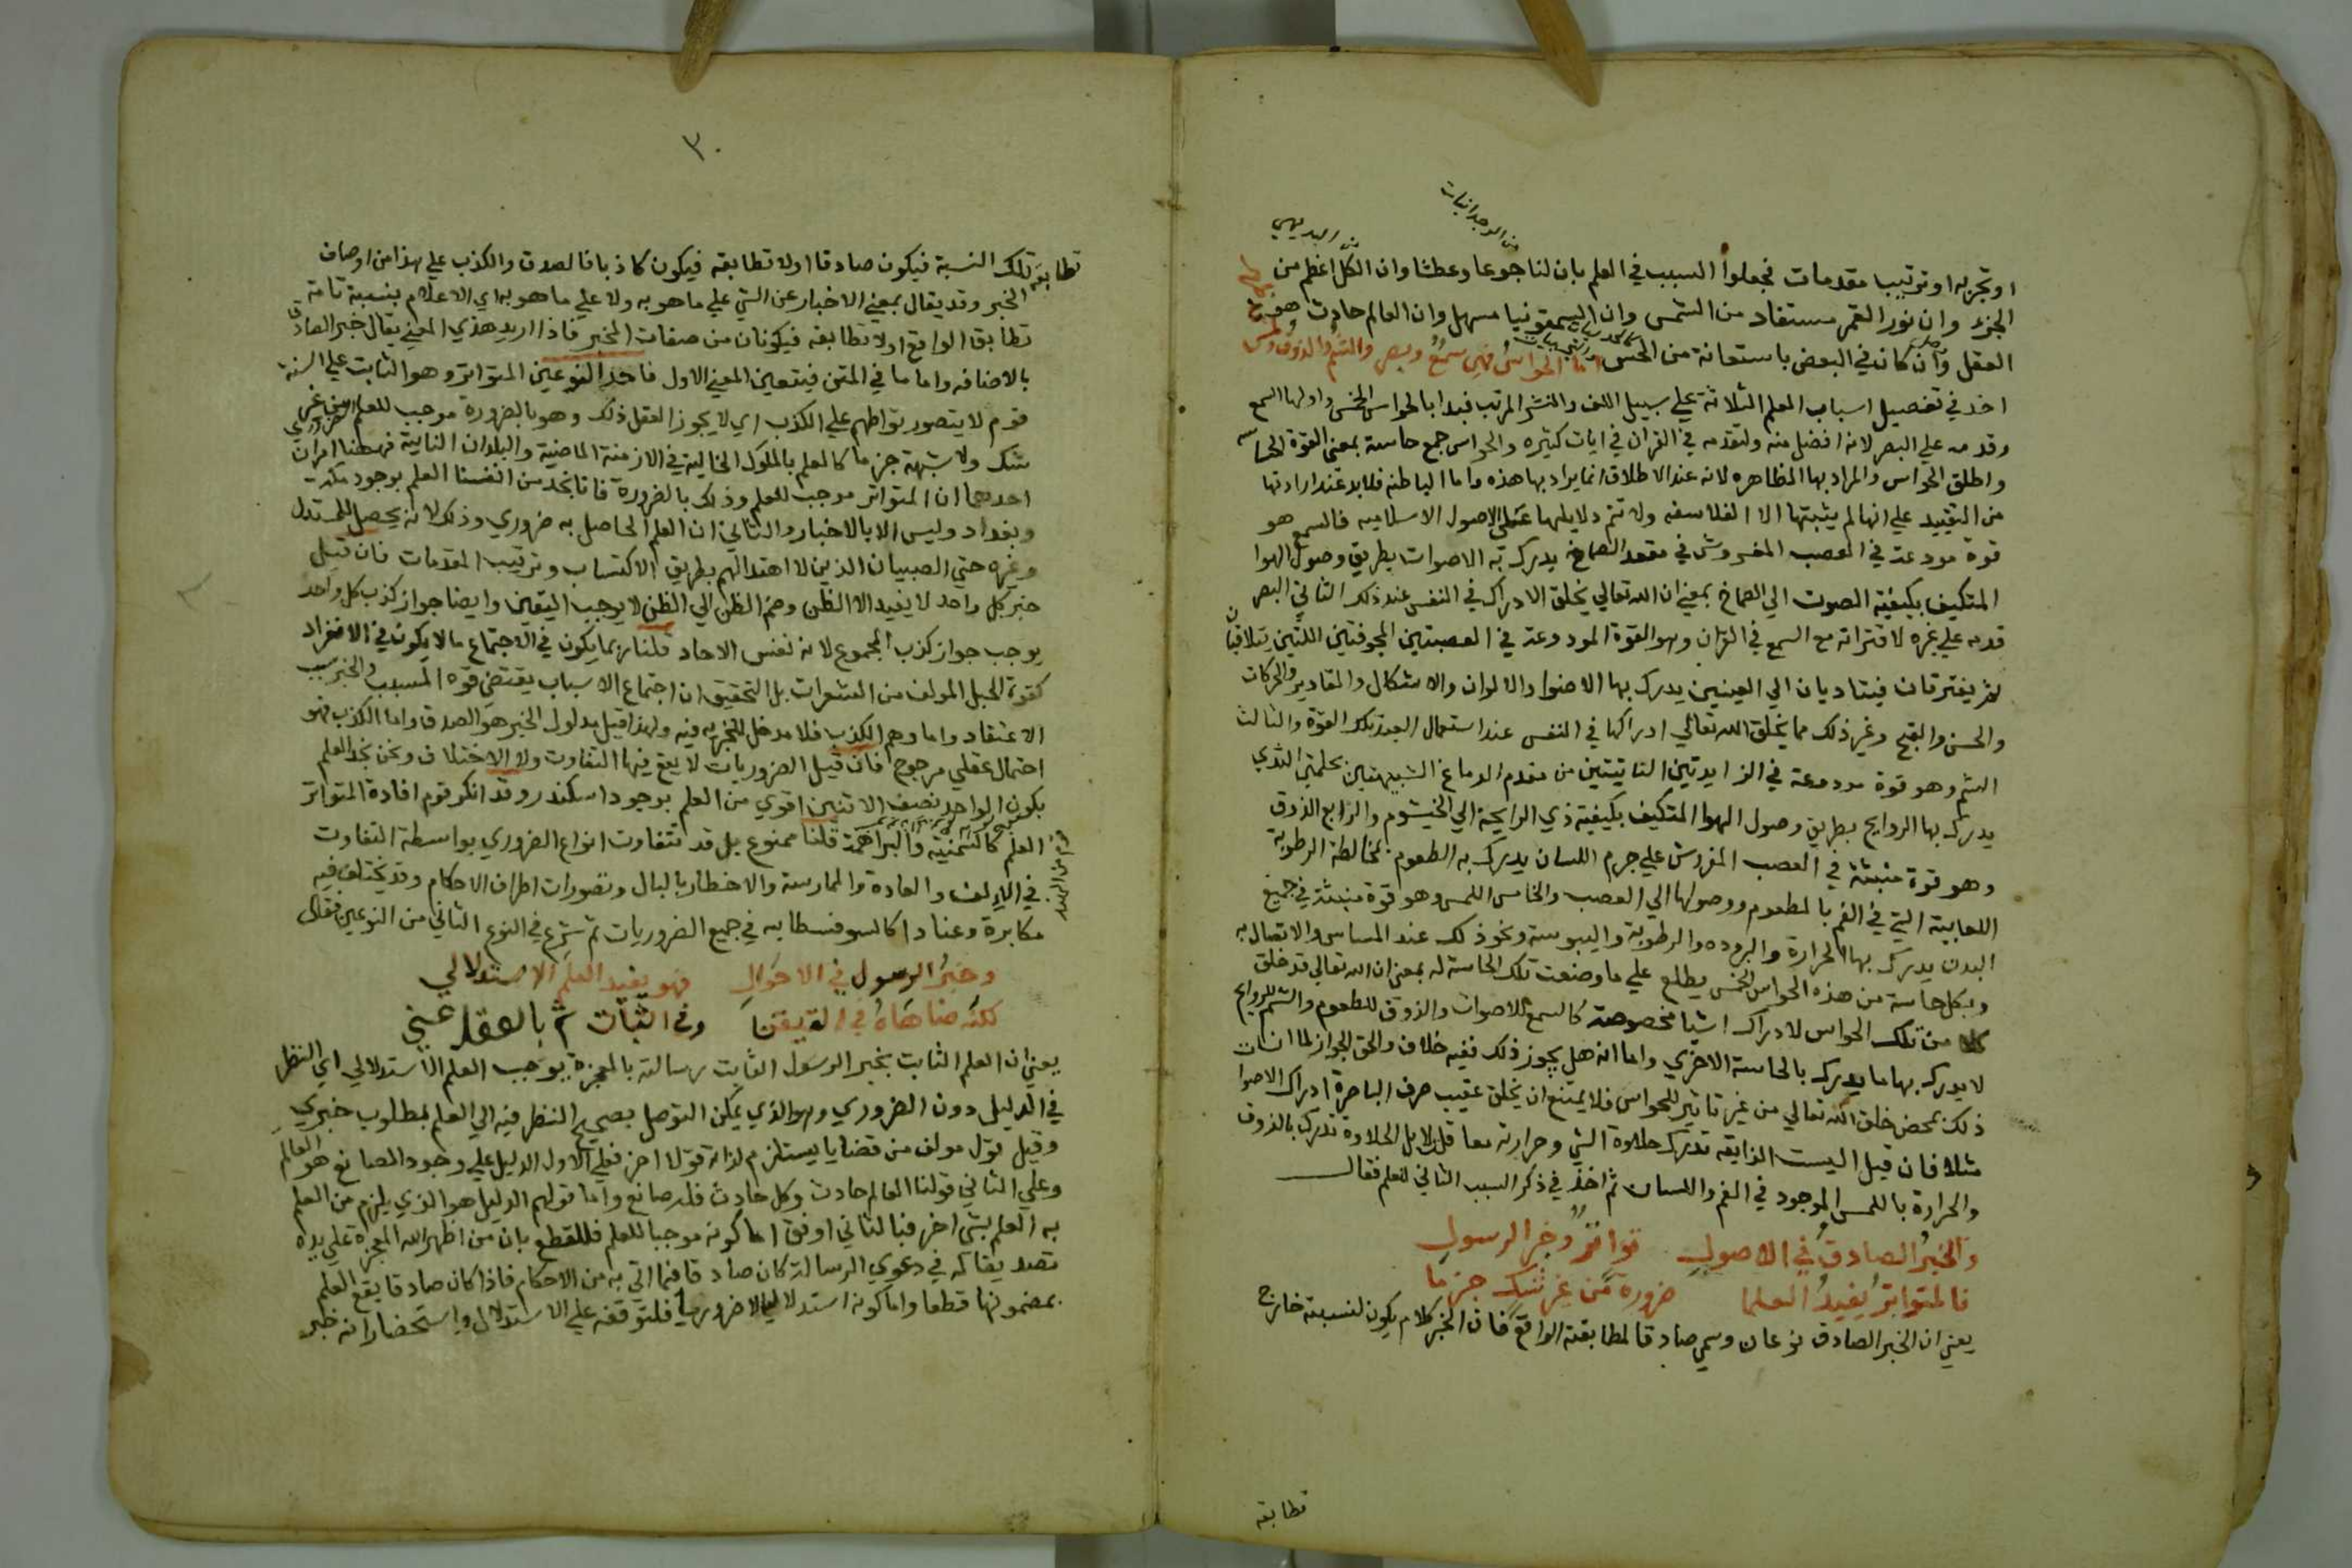 من الوجدانيات
البديهي
او تجربه او ترتيب مقدمات فجعلوا السبب في العلم بان لنا جوعا وعطشا وان الكل اعظم من
الجزء وان نور القمر مستفاد من الشمس وان السمقونيا مسهل وان العالم حادث هو
العقل وان كان في البعض باستعانة من الحس اما الحواس فهي سمع وبصر والشم والذوق ولمس
اخذ في تفصيل اسباب العلم الثلاثة علي سبيل اللف والنشر المرتب فبدا بالحواس الخمس واولها السمع
وقدمه علي البصر لانه افضل منه ولتقدمه في القران في ايات كثيره والحواس جمع حاسة بمعني القوة الحاسه
واطلق الحواس والمراد بها الظاهره لانه عند الاطلاق انما يراد بها هذه واما الباطنه فلا بد عند ارادتها
من التقييد علي انها لم يثبتها الا الفلاسفه ولا تتم دلايلها علي الاصول الاسلاميه فالسمع هو
قوة مودعة في العصب المفروش في مقعد الصماخ يدرك به الاصوات بطريق وصول الهوا
المتكيف بكيفية الصوت الي الصماخ بمعني ان الله تعالي يخلق الادراك في النفس عند ذلك الثاني البصر
قدمه علي غيره لاقترانه مع السمع في القران وهو القوة المودوعة في العصبتين المجوفتين اللتين يتلاقيان
ثم يفترقان فيتاديان الي العينين يدرك بها الاضوا والالوان والاشكال والمقادير والحركات
والحسن والقبح وغير ذلك مما يخلق الله تعالي ادراكها في النفس عند استعمال العبد تلك القوة والثالث
الشم وهو قوة مودوعة في الزايدتين الناتيتين من مقدم الدماغ الشبيهتين بحلمتي الثدي
يدرك بها الروايح بطريق وصول الهوا المتكيف بكيفية ذي الرايحة الي الخيشوم والرابع الذوق
وهو قوة منبثة في العصب المفروش علي جرم اللسان يدرك به الطعوم بمخالطة الرطوبة
اللعابية التي في الفم بالمطعوم ووصولها الي العصب والخامس اللمس وهو قوة منبثة في جميع
البدن يدرك بها الحرارة والبروده والرطوبة واليبوسة ونحو ذلك عند المساس والاتصال به
وبكل حاسة من هذه الحواس الخمس يطلع علي ما وضعت تلك الحاسة له بمعني ان الله تعالي قد خلق
كلا من تلك الحواس لادراك اشيا مخصوصة كالسمع للاصوات والذوق للطعوم والشم للروايح
لا يدرك بها ما يدرك بالحاسة الاخري واما انه هل يجوز ذلك ففيه خلاف والحق الجواز لما ان
ذلك بمحض خلق الله تعالي من غير تاثير للحواس فلا يمتنع ان يخلق عقيب صرف الباصرة ادراك الاصوا
مثلا فان قيل اليست الذايقه تدرك حلاوة الشي وحرارته معا قلنا لا بل الحلاوة تدرك بالذوق
والحرارة باللمس الموجود في الفم واللسان ثم اخذ في ذكر السبب الثاني للعلم فقال
والخبر الصادق في الاصول تواتر وخبر الرسول
فالمتواتر يفيد العلما ضرورة من غير شك جزما
يعني ان الخبر الصادق نوعان وسمي صادقا لمطابقته الواقع فان الخبر كلام يكون لنسبته خارج
تطابقه
٣٠
تطابقه تلك النسبة فيكون صادقا اولا تطابقه فيكون كاذبا فالصدق والكذب علي هذا من اوصاف
الخبر وقد يقال بمعني الاخبار عن الشي علي ما هو به ولا علي ما هو به اي الاعلام بنسبة تامة
تطابق الواقع اولا تطابقه فيكونان من صفات المخبر فاذا اريد هذي المعني يقال خبر الصادق
بالاضافه واما ما في المتن فيتعين المعني الاول فاحد النوعين المتواتر وهو الثابت علي السنة
قوم لا يتصور تواطهم علي الكذب اي لا يجوز العقل ذلك وهو بالضرورة موجب للعلم من غير
شك ولا شبهة جزما كالعلم بالملوك الخالية في الازمنة الماضية والبلدان النايية فههنا امران
احدهما ان المتواتر موجب للعلم وذلك بالضرورة فانا نجد من انفسنا العلم بوجود مكة
وبغداد وليس الا بالاخبار والثاني ان العلم الحاصل به ضروري وذلك لانه يحصل للمستدل
وغيره حتي الصبيان الذين لا اهتدا لهم بطريق الاكتساب وترتيب المقدمات فان قيل
خبر كل واحد لا يفيد الا الظن وضم الظن الي الظن لا يوجب اليقين وايضا جواز كذب كل واحد
يوجب جواز كذب المجموع لانه نفس الاحاد قلنا ربما يكون في الاجتماع ما لا يكون في الانفراد
كقوة الحبل المولف من الشعرات بل التحقيق ان اجتماع الاسباب يقتضي قوة المسبب والخبر سبب
الاعتقاد واما وهم الكذب فلا مدخل للخبر به فيه ولهذا قيل مدلول الخبر هو الصدق واما الكذب فهو
احتمال عقلي مرجوح فان قيل الضروريات لا يقع فيها التفاوت ولا الاختلاف ونحن نجد العلم
بكون الواحد نصف الاثنين اقوي من العلم بوجود اسكندر وقد انكر قوم افادة المتواتر
العلم كالسمنية والبراهمة قلنا ممنوع بل قد تتفاوت انواع الضروري بواسطة التفاوت
في الالف والعادة والممارسة والاخطار بالبال وتصورات اطراف الاحكام وقد يختلف فيه
مكابرة وعنادا كالسوفسطايه في جميع الضروريات ثم شرع في النوع الثاني من النوعين فقال
وخبر الرسول في الاحوال فهو يفيد العلم الاستدلالي
لكنه ضاهاه في التيقن وفي الثبات ثم بالعقل عني
يعني ان العلم الثابت بخبر الرسول الثابت رسالته بالمعجزة يوجب العلم الاستدلالي اي النظر
في الدليل دون الضروري وهو الذي يمكن التوصل بصحيح النظر فيه الي العلم بمطلوب خبري
وقيل قول مولف من قضايا يستلزم لذاته قولا اخر فعلي الاول الدليل علي وجود الصانع هو العالم
وعلي الثاني قولنا العالم حادث وكل حادث فله صانع واما قولهم الدليل هو الذي يلزم من العلم
به العلم بشي اخر فبالثاني اوفق اما كونه موجبا للعلم فللقطع بان من اظهر الله المعجزة علي يده
تصديقا له في دعوي الرسالة كان صادقا فيما اتي به من الاحكام فاذا كان صادقا يقع العلم
بمضمونها قطعا واما كونه استدلاليا لا ضروريا فلتوقفه علي الاستدلال واستحضار انه خبر